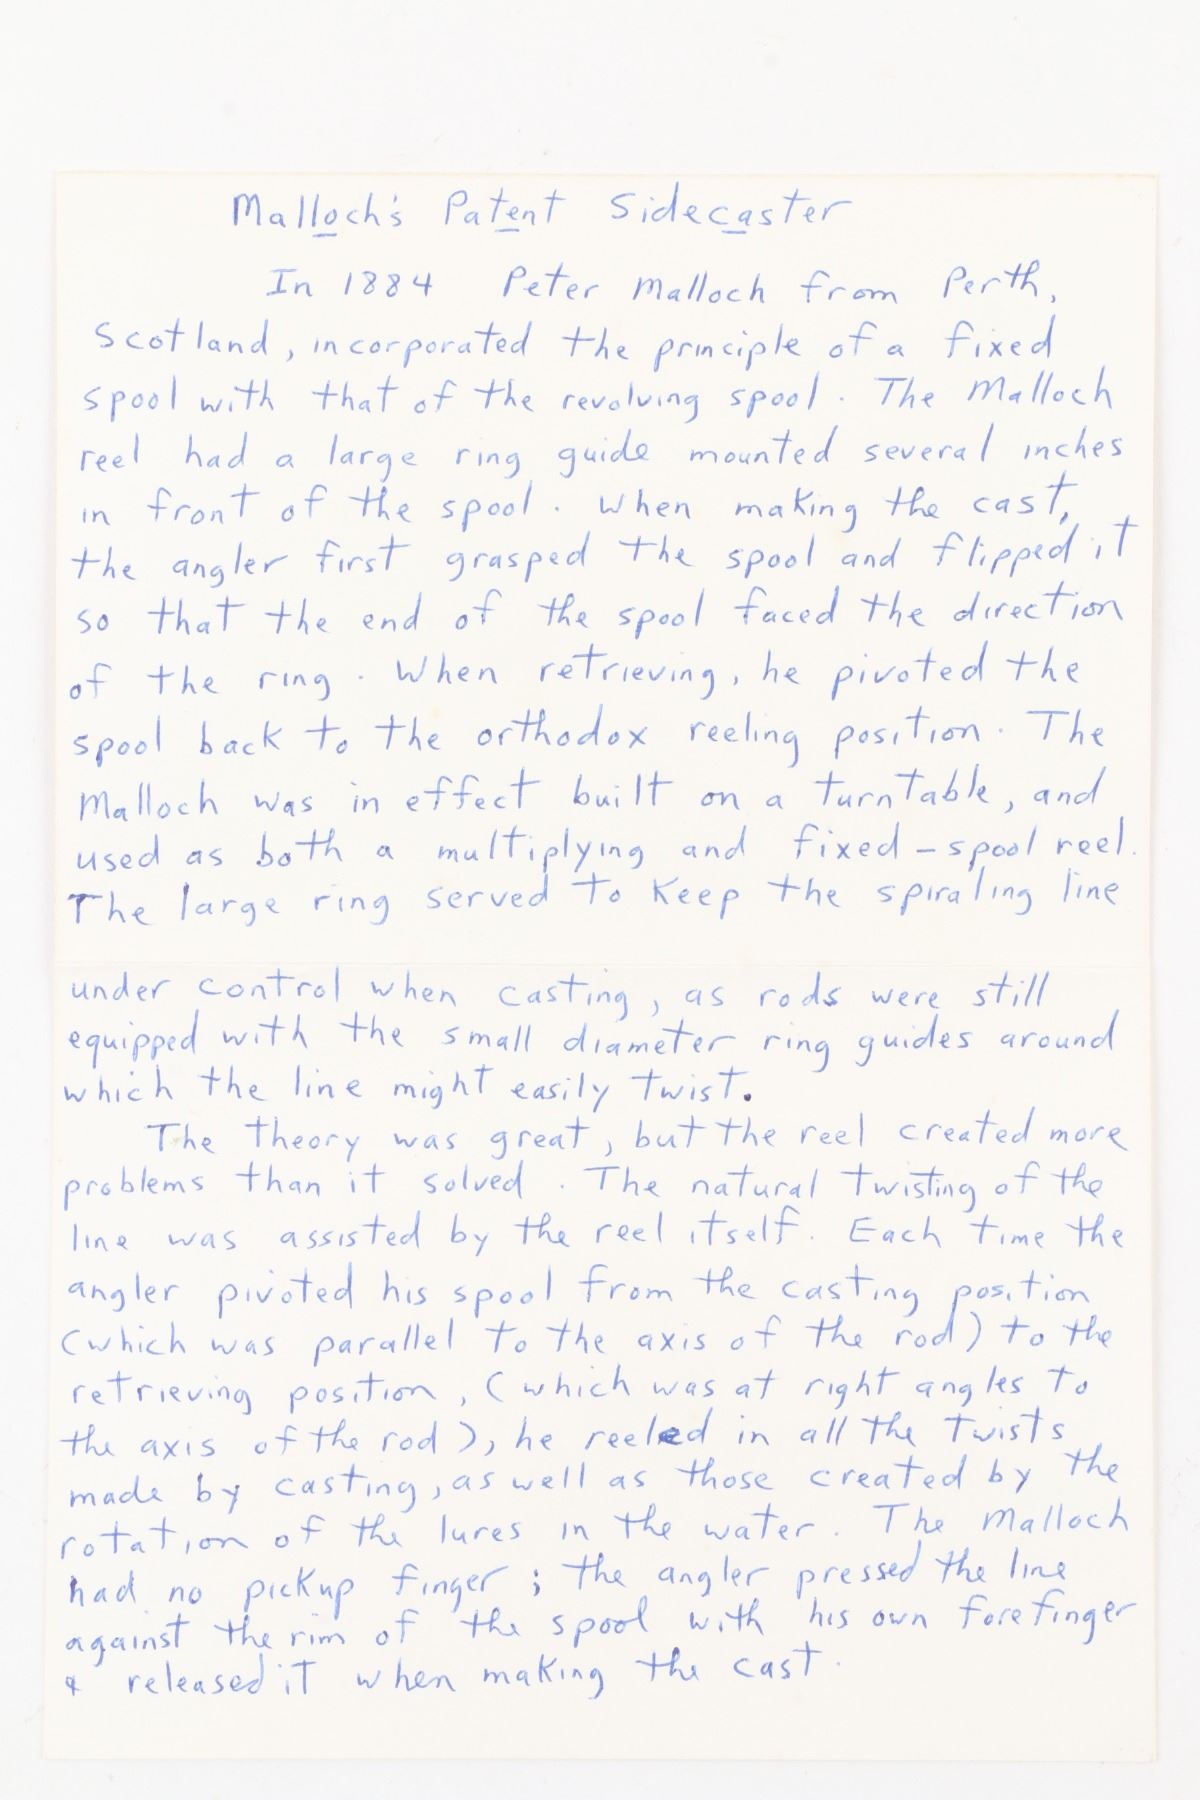 Malloch's Patent Sidecaster
In 1884 Peter Malloch from Perth,
Scotland, incorporated the principle of a fixed
spool with that of the revolving spool. The Malloch
reel had a large ring guide mounted several inches
in front of the spool. When making the cast,
the angler first grasped the spool and flipped it
so that the end of the spool faced the direction
of the ring. When retrieving, he pivoted the
spool back to the orthodox reeling position. The
Malloch was in effect built on a turntable, and
used as both a multiplying and fixed-spool reel.
The large ring served to keep the spiraling line
under control when casting, as rods were still
equipped with the small diameter ring guides around
which the line might easily twist.
The theory was great, but the reel created more
problems than it solved. The natural twisting of the
line was assisted by the reel itself. Each time the
angler pivoted his spool from the casting position
(which was parallel to the axis of the rod) to the
retrieving position, (which was at right angles to
the axis of the rod), he reeled in all the twists
made by casting, as well as those created by the
rotation of the lures in the water. The Malloch
had no pickup finger; the angler pressed the line
against the rim of the spool with his own forefinger
& released it when making the cast.